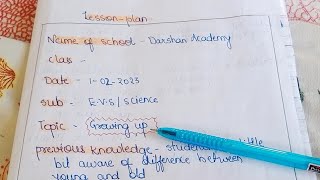 Lesson-plan
Name of school - Darshan Academy
class -
Date - 1-02-2023
sub - E.V.S / Science
Topic - Growing up
previous knowledge - students little
bit aware of difference between
young and old